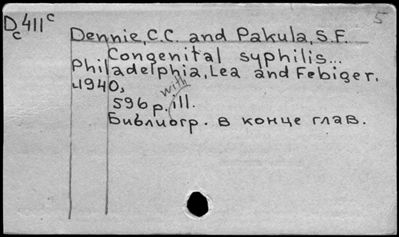 5
Dc411c
Dennie, C.C. and Pakula, S.F.
Congenital syphilis...
Philadelphia, Lea and Febiger.
1940,
596 p. with ill.
Библиогр. в конце глав.